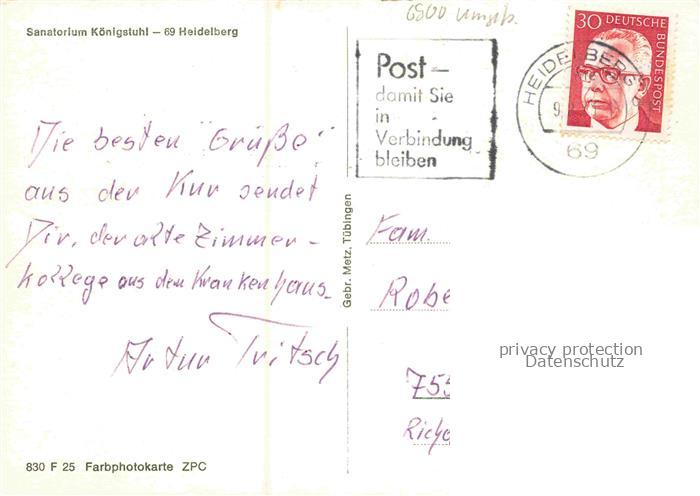 Sanatorium Königstuhl – 69 Heidelberg
6900 Umgb.
Post –
damit Sie
in
Verbindung
bleiben
30 DEUTSCHE
BUNDESPOST
HEIDELBERG
9.
69
Die besten "Grüße"
aus der Kur sendet
Dir, der alte Zimmer-
kollege aus dem Krankenhaus.
Artur Tritsch
Gebr. Metz, Tübingen
Fam.
Robe
755
Richa
privacy protection
Datenschutz
830 F 25 Farbphotokarte ZPC